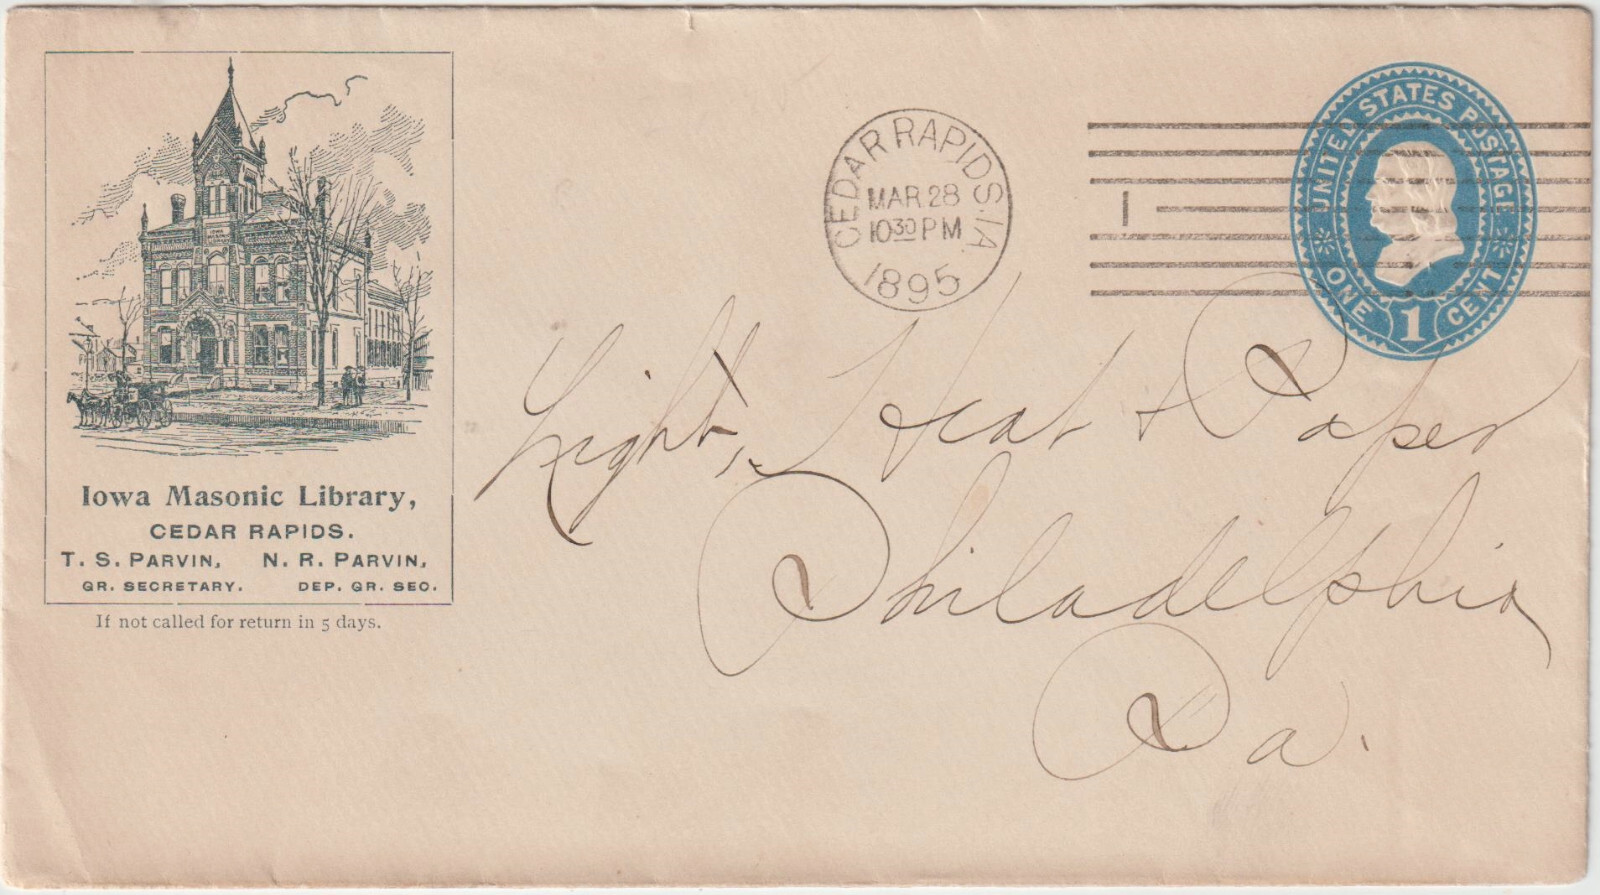 IOWA MASONIC LIBRARY
Iowa Masonic Library,
CEDAR RAPIDS.
T. S. PARVIN, N. R. PARVIN,
GR. SECRETARY. DEP. GR. SEC.
If not called for return in 5 days.
CEDAR RAPIDS. IA.
MAR 28
10 30 PM
1895
1
UNITED STATES POSTAGE
ONE 1 CENT
Light, Heat & Paper
Philadelphia
Pa.